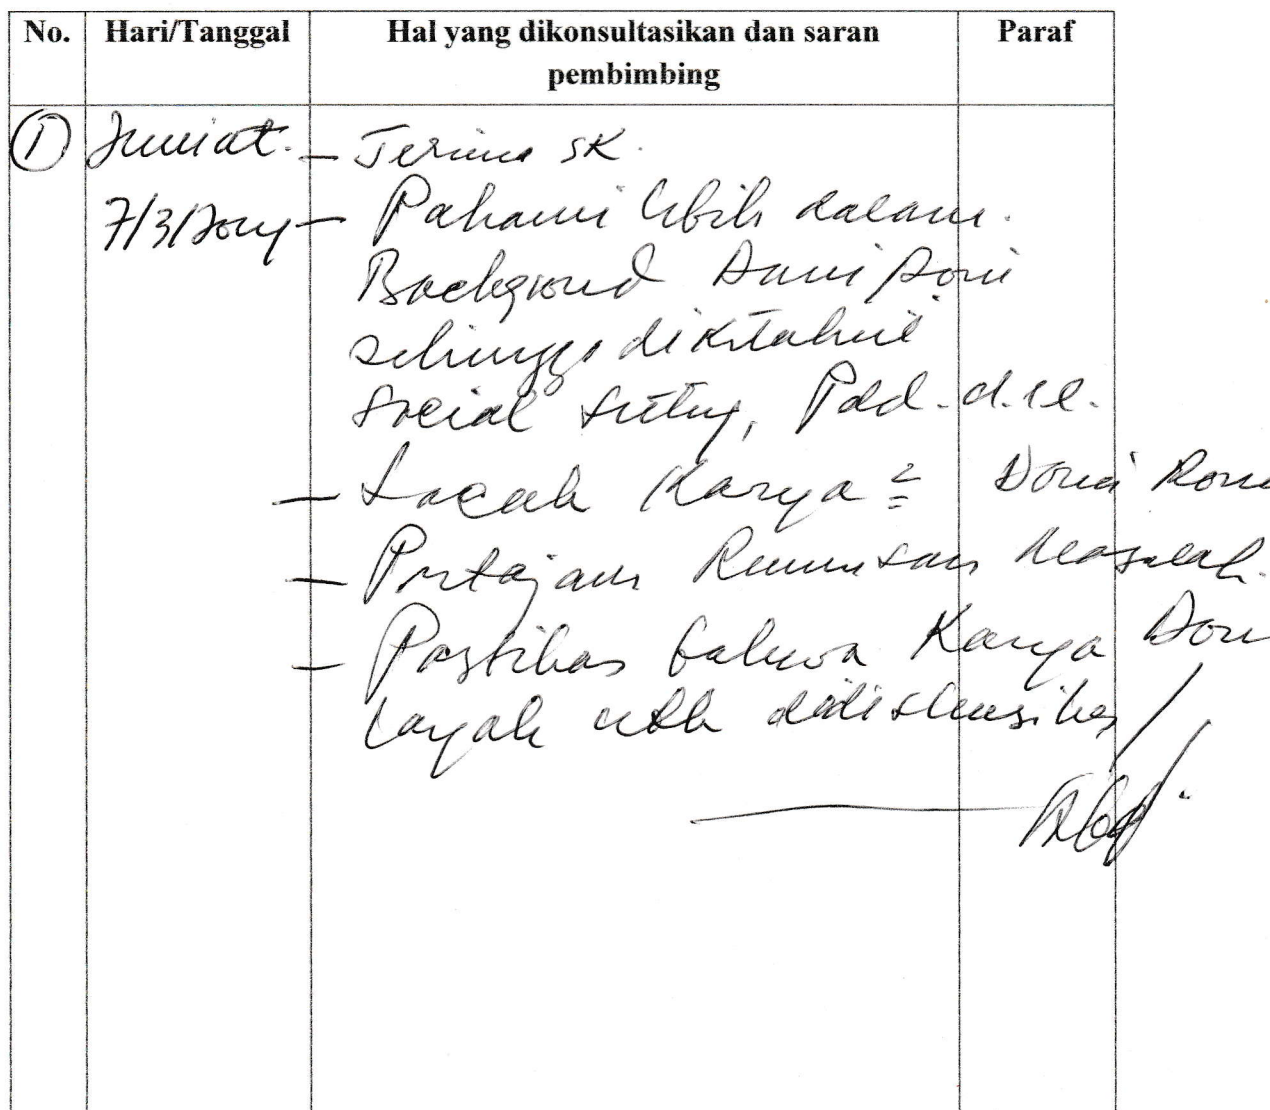 No. Hari/Tanggal Hal yang dikonsultasikan dan saran Paraf
pembimbing
① Jum'at. - Terima SK.
7/3/2014 - Pahami lebih dalam.
Background Doni Roni
sehingga diketahui
social setting, Pdd. d.ll.
- Lacak Karya² Doni Roni
- Pertajam Rumusan Masalah.
- Pastikan bahwa Karya Doni
layak utk didiskusikan